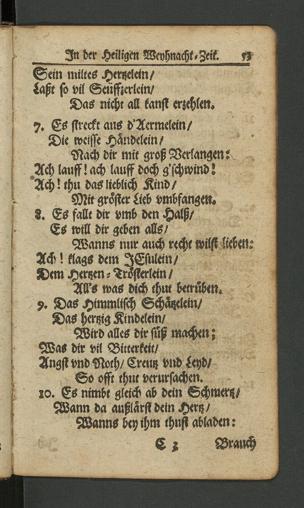 In der Heiligen Weyhnacht-Zeit. 53
Sein miltes Hertzelein/
Laßt so vil Seufftzerlein/
Das nicht all kanst erzehlen.
7. Es streckt aus d'Aermelein/
Die weisse Händelein/
Nach dir mit groß Verlangen:
Ach lauff! ach lauff doch g'schwind!
Ach! thu das lieblich Kind/
Mit gröster Lieb vmbfangen.
8. Es falle dir vmb den Halß/
Es will dir geben alls/
Wanns nur auch recht wilst lieben:
Ach! klags dem JEsulein/
Dem Hertzen-Trösterlein/
All's was dich thut betrüben.
9. Das Himmlisch Schätzelein/
Das hertzig Kindelein/
Wird alles dir süß machen;
Was dir vil Bitterkeit/
Angst vnd Noth/ Creutz vnd Leyd/
So offt thut verursachen.
10. Es nimbt gleich ab dein Schmertz/
Wann da außlärst dein Hertz/
Wanns bey ihm thust abladen:
C 3 Brauch